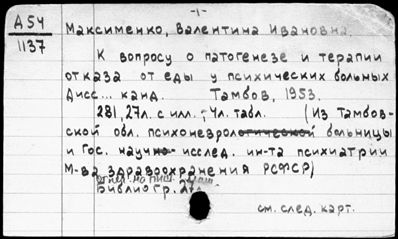 -1-
А54
1137
Максименко, Валентина Ивановна.
К вопросу о патогенезе и терапии
отказа от еды у психических больных
Дисс... канд. Тамбов, 1953.
281, 27л. с илл.; 4л. табл. (Из Тамбов-
ской обл. психоневрологической больницы
и Гос. научно- исслед. ин-та психиатрии
М-ва здравоохранения РСФСР)
Отпеч. на пиш. маш.
Библиогр. 27л.
см. след. карт.